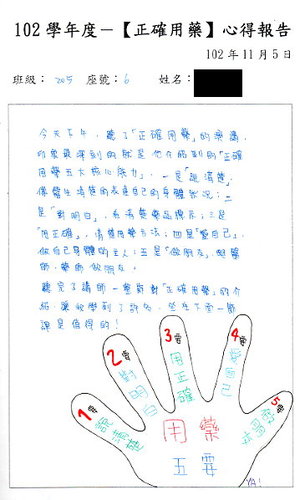 102 學年度－【正確用藥】心得報告
102 年 11 月 5 日
班級： 205 座號：6 姓名：
今天下午，聽了「正確用藥」的演講，
印象最深刻的就是他介紹到的「正確
用藥五大核心能力」，一是「說清楚」，
像醫生清楚的表達自己的身體狀況；二
是「對明白」，看清楚藥品標示；三是
「用正確」，清楚用藥方法；四是「愛自己」，
做自己身體的主人；五是「做朋友」，跟醫
師、藥師做朋友。
聽完了講師一番對「正確用藥」的介
紹，讓我學到了許多，坐在下面一節
課是值得的！
1 會 說清楚
2 會 對明白
3 會 用正確
4 會 愛自己
5 會
用藥
五要
YA!